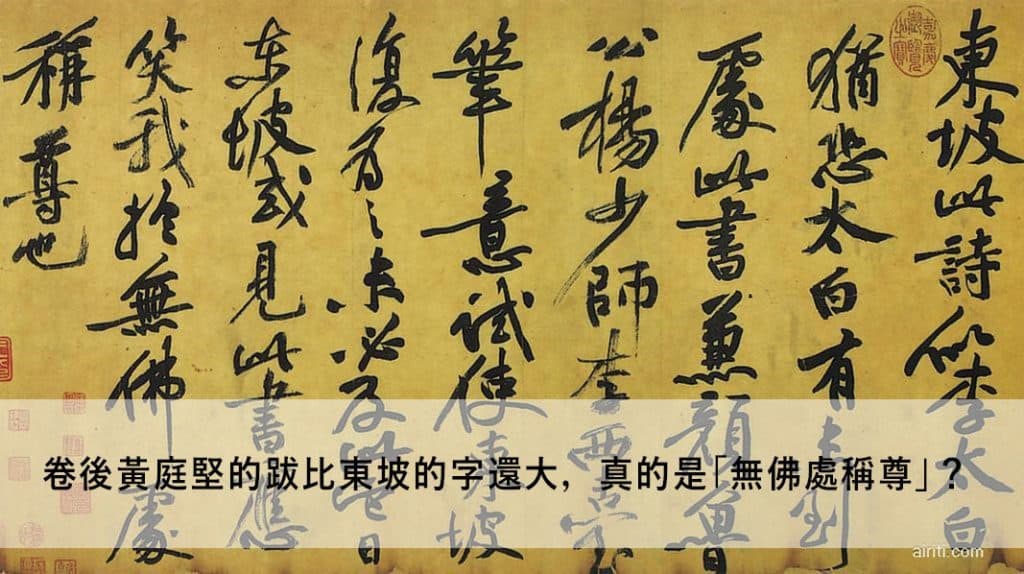 嘉慶御覽之寶
東坡此詩似李太白
猶恐太白有未到
處此書兼顏魯
公楊少師李西臺
筆意試使東坡
復為之未必及此它日
東坡或見此書應
笑我於無佛處
稱尊也
卷後黃庭堅的跋比東坡的字還大，真的是「無佛處稱尊」？
airiti.com